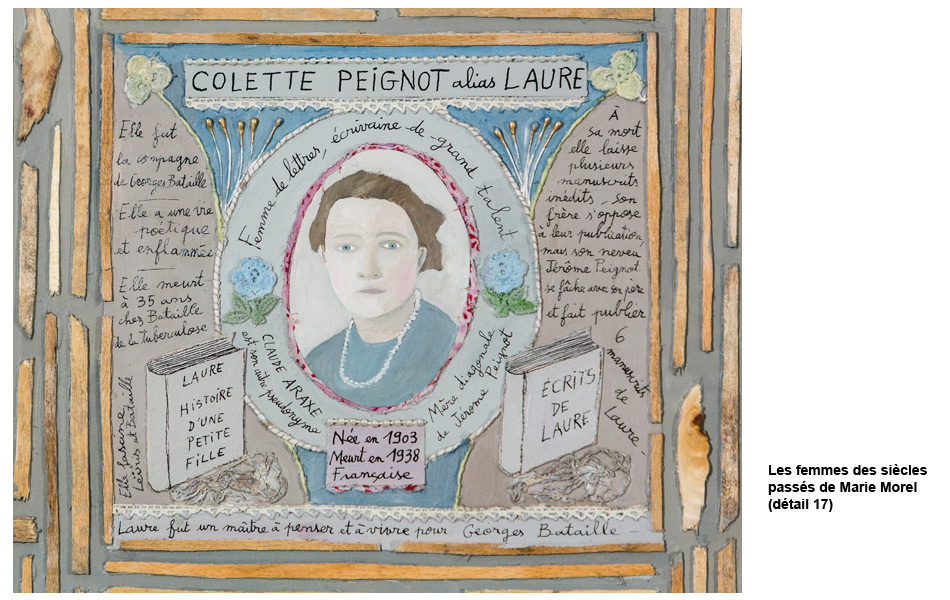 COLETTE PEIGNOT alias LAURE
Femme de lettres, écrivaine de grand talent
Elle fut
la compagne
de Georges Bataille
Elle a une vie
poétique
et enflammée
Elle meurt
à 35 ans
chez Bataille
de la tuberculose
Elle fascine,
Leiris et Bataille.
LAURE
HISTOIRE
D'UNE
PETITE
FILLE
CLAUDE ARAXE
est son autre pseudonyme
Mère diagonale
de Jérôme Peignot
Née en 1903
Meurt en 1938
Française
À
sa mort
elle laisse
plusieurs
manuscrits
inédits. Son
frère s'oppose
à leur publication,
mais son neveu
Jérôme Peignot
se fâche avec son père
et fait publier
6
manuscrits
de
Laure.
ÉCRITS
DE
LAURE
Laure fut un maître à penser et à vivre pour Georges Bataille
Les femmes des siècles
passés de Marie Morel
(détail 17)